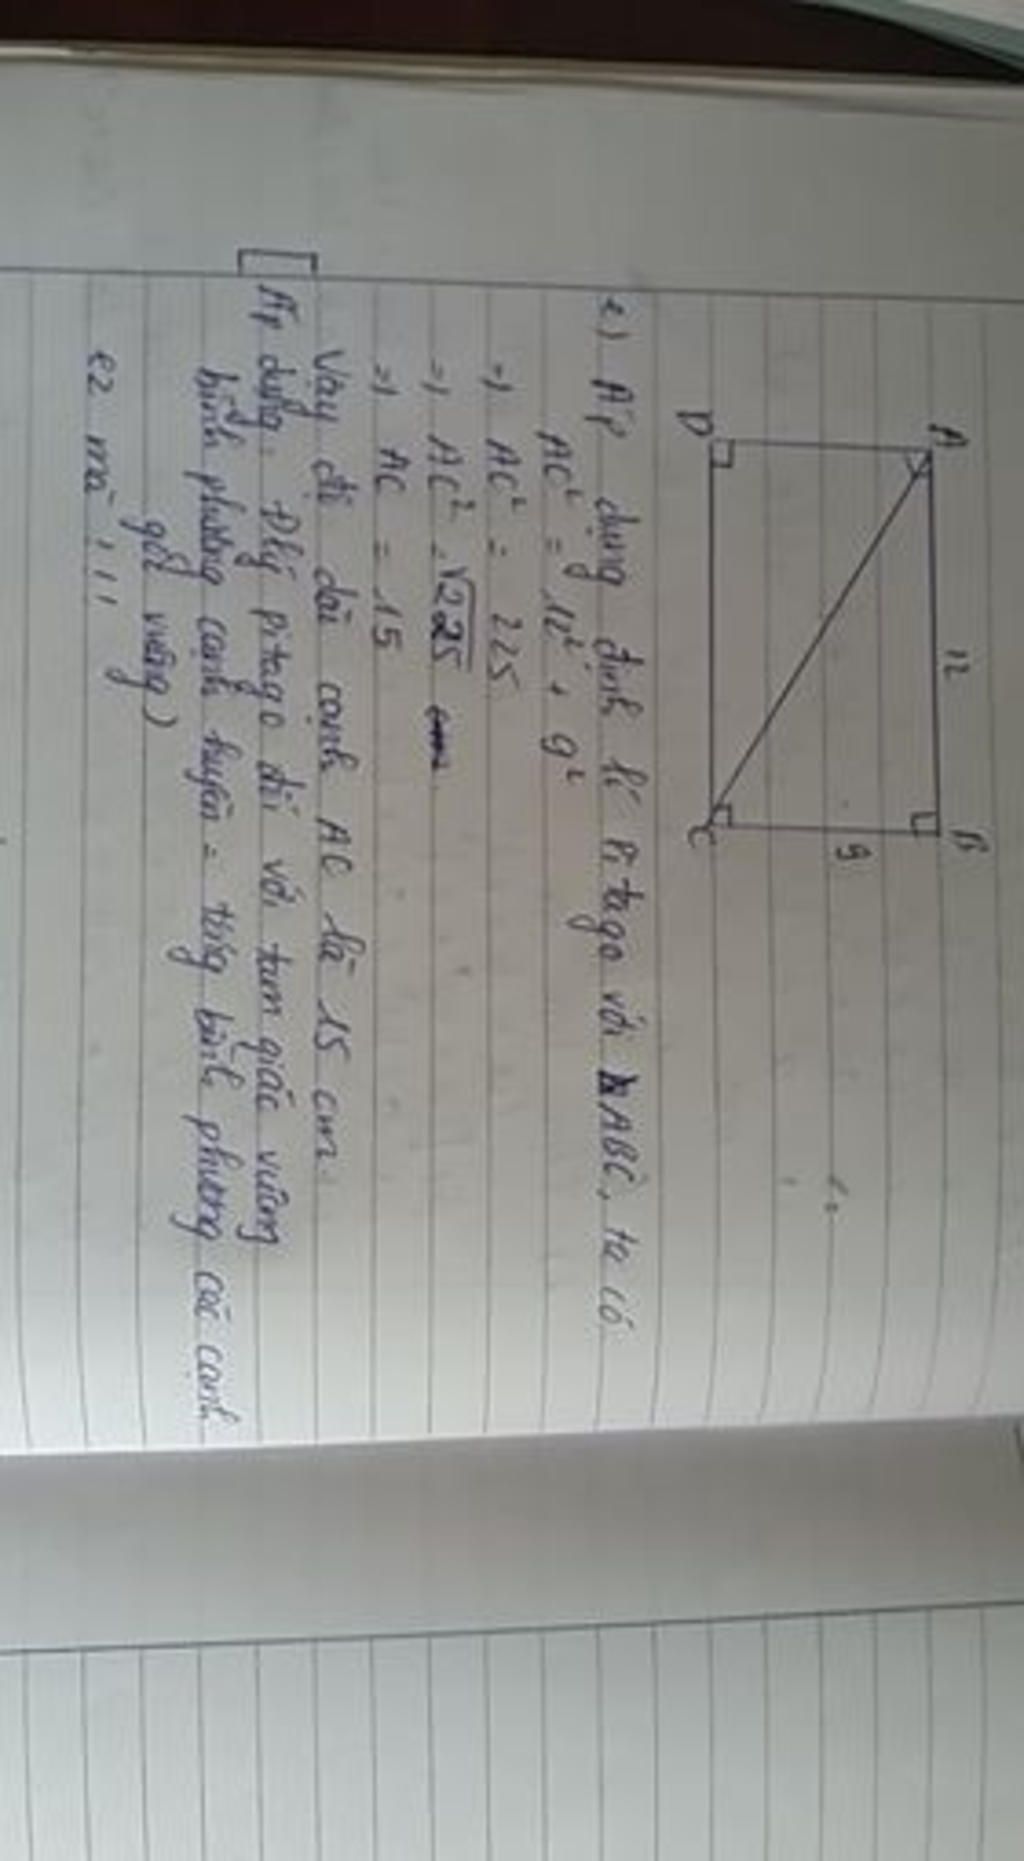 A
12
B
9
D
C
c) Áp dụng định lí Pitago với ABC, ta có
AC² = 12² + 9²
=> AC² = 225
=> AC² = √225
=> AC = 15
Vậy độ dài cạnh AC là 15 cm
Áp dụng. Đlý pitago đối với tam giác vuông
bình phương cạnh huyền = tổng bình phương các cạnh
góc vuông)
ez mà !!!